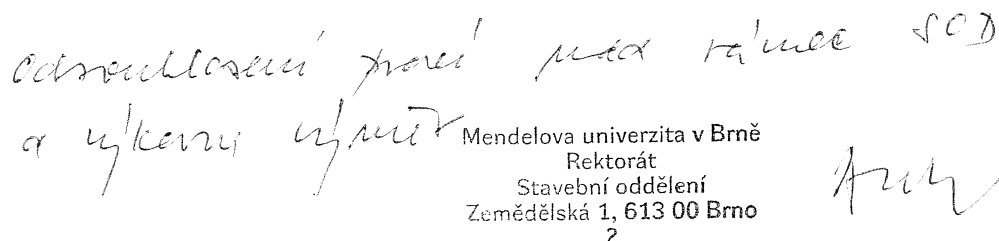 Odsouhlasení prací nad rámec SOD
a výkazu výměr
Mendelova univerzita v Brně
Rektorát
Stavební oddělení
Zemědělská 1, 613 00 Brno
2